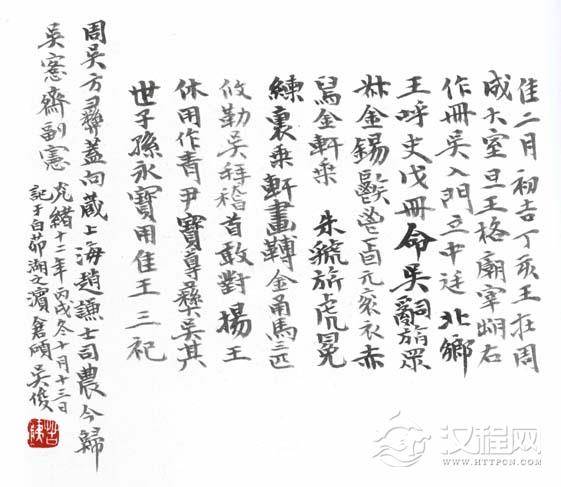 隹二月初吉丁亥王在周
成大室旦王格廟宰朏右
作冊吳入門立中廷北鄉
王呼史戊冊命吳司旃眔
叔金錫鬯卣元袞衣赤
舄金軒乘 朱虢旂虎冕
練裏乘軒畫轉金甬馬三匹
攸勒吳拜稽首敢對揚王
休用作青尹寶尊彝吳其
世子孫永寶用隹王二祀
周吳方彝蓋向藏上海趙謙士司農今歸
吳愙齋副憲
光緒十二年丙戌冬十月十三日
記于白茆湖之濱倉碩吳俊
汉程网
WWW.HTTPCN.COM